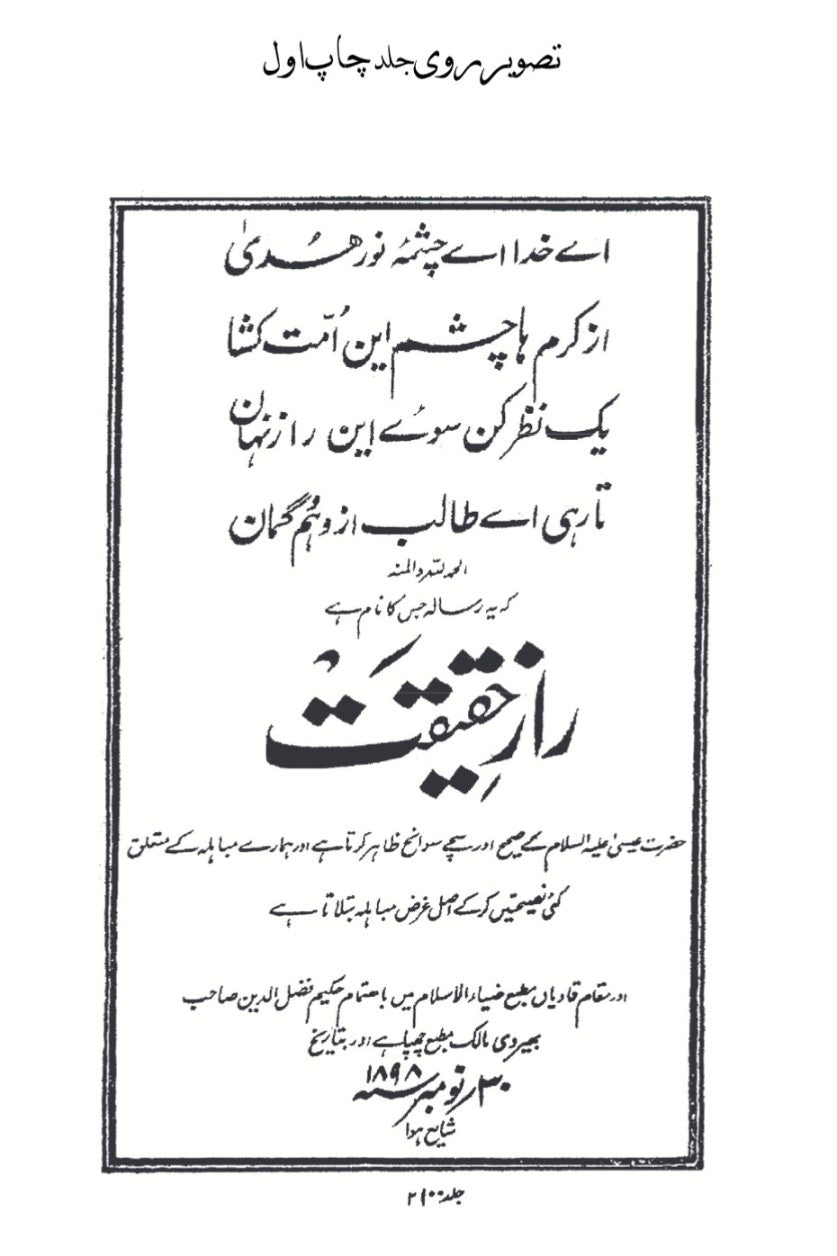 تصویر روی جلد چاپ اول
اے خدا اے چشمۂ نور ھُدیٰ
از کرم ہا چشم این اُمّت کشا
یک نظر کن سوئے این راز نہان
تا رہی اے طالب از وہم و گمان
الحمد للہ والمنہ
کہ یہ رسالہ جس کا نام ہے
رازِ حقیقت
حضرت عیسیٰ علیہ السلام کے صحیح اور سچے سوانح ظاہر کرتا ہے اور ہمارے مباہلہ کے متعلق
کئی نصیحتیں کر کے اصل غرض مباہلہ بتلاتا ہے
اور بمقام قادیاں مطبع ضیاء الاسلام میں باھتمام حکیم فضل الدین صاحب
بھیروی مالک مطبع چھپا ہے اور بتاریخ
۳۰ نومبر سنہ ۱۸۹۸
شایع ہوا
جلد ۲۱۰۰